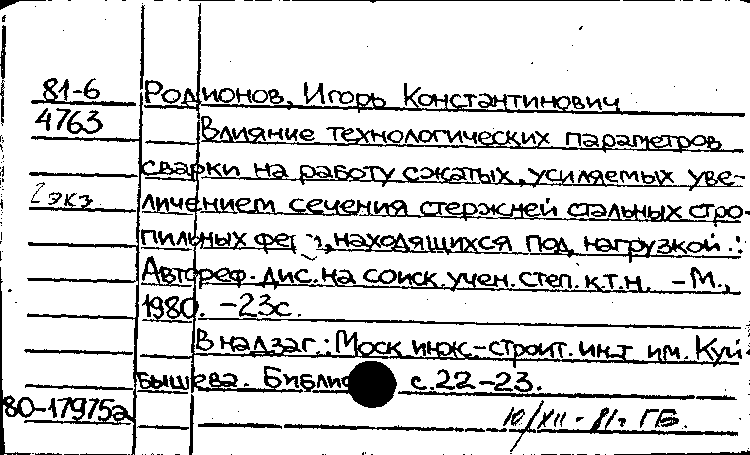 81-6 Родионов, Игорь Константинович
4763 Влияние технологических параметров
сварки на работу сжатых, усиляемых уве-
2 экз личением сечения стержней стальных стро-
пильных, находящихся под нагрузкой.:
Автореф. дис. на соиск. учен. степ. к.т.н. - М.,
1980. - 23с.
В надзаг.: Моск инж.-строит. ин-т им. Куй-
бышева. Библио с. 22-23.
80-17975а
10/XII - 81г. ГБ.